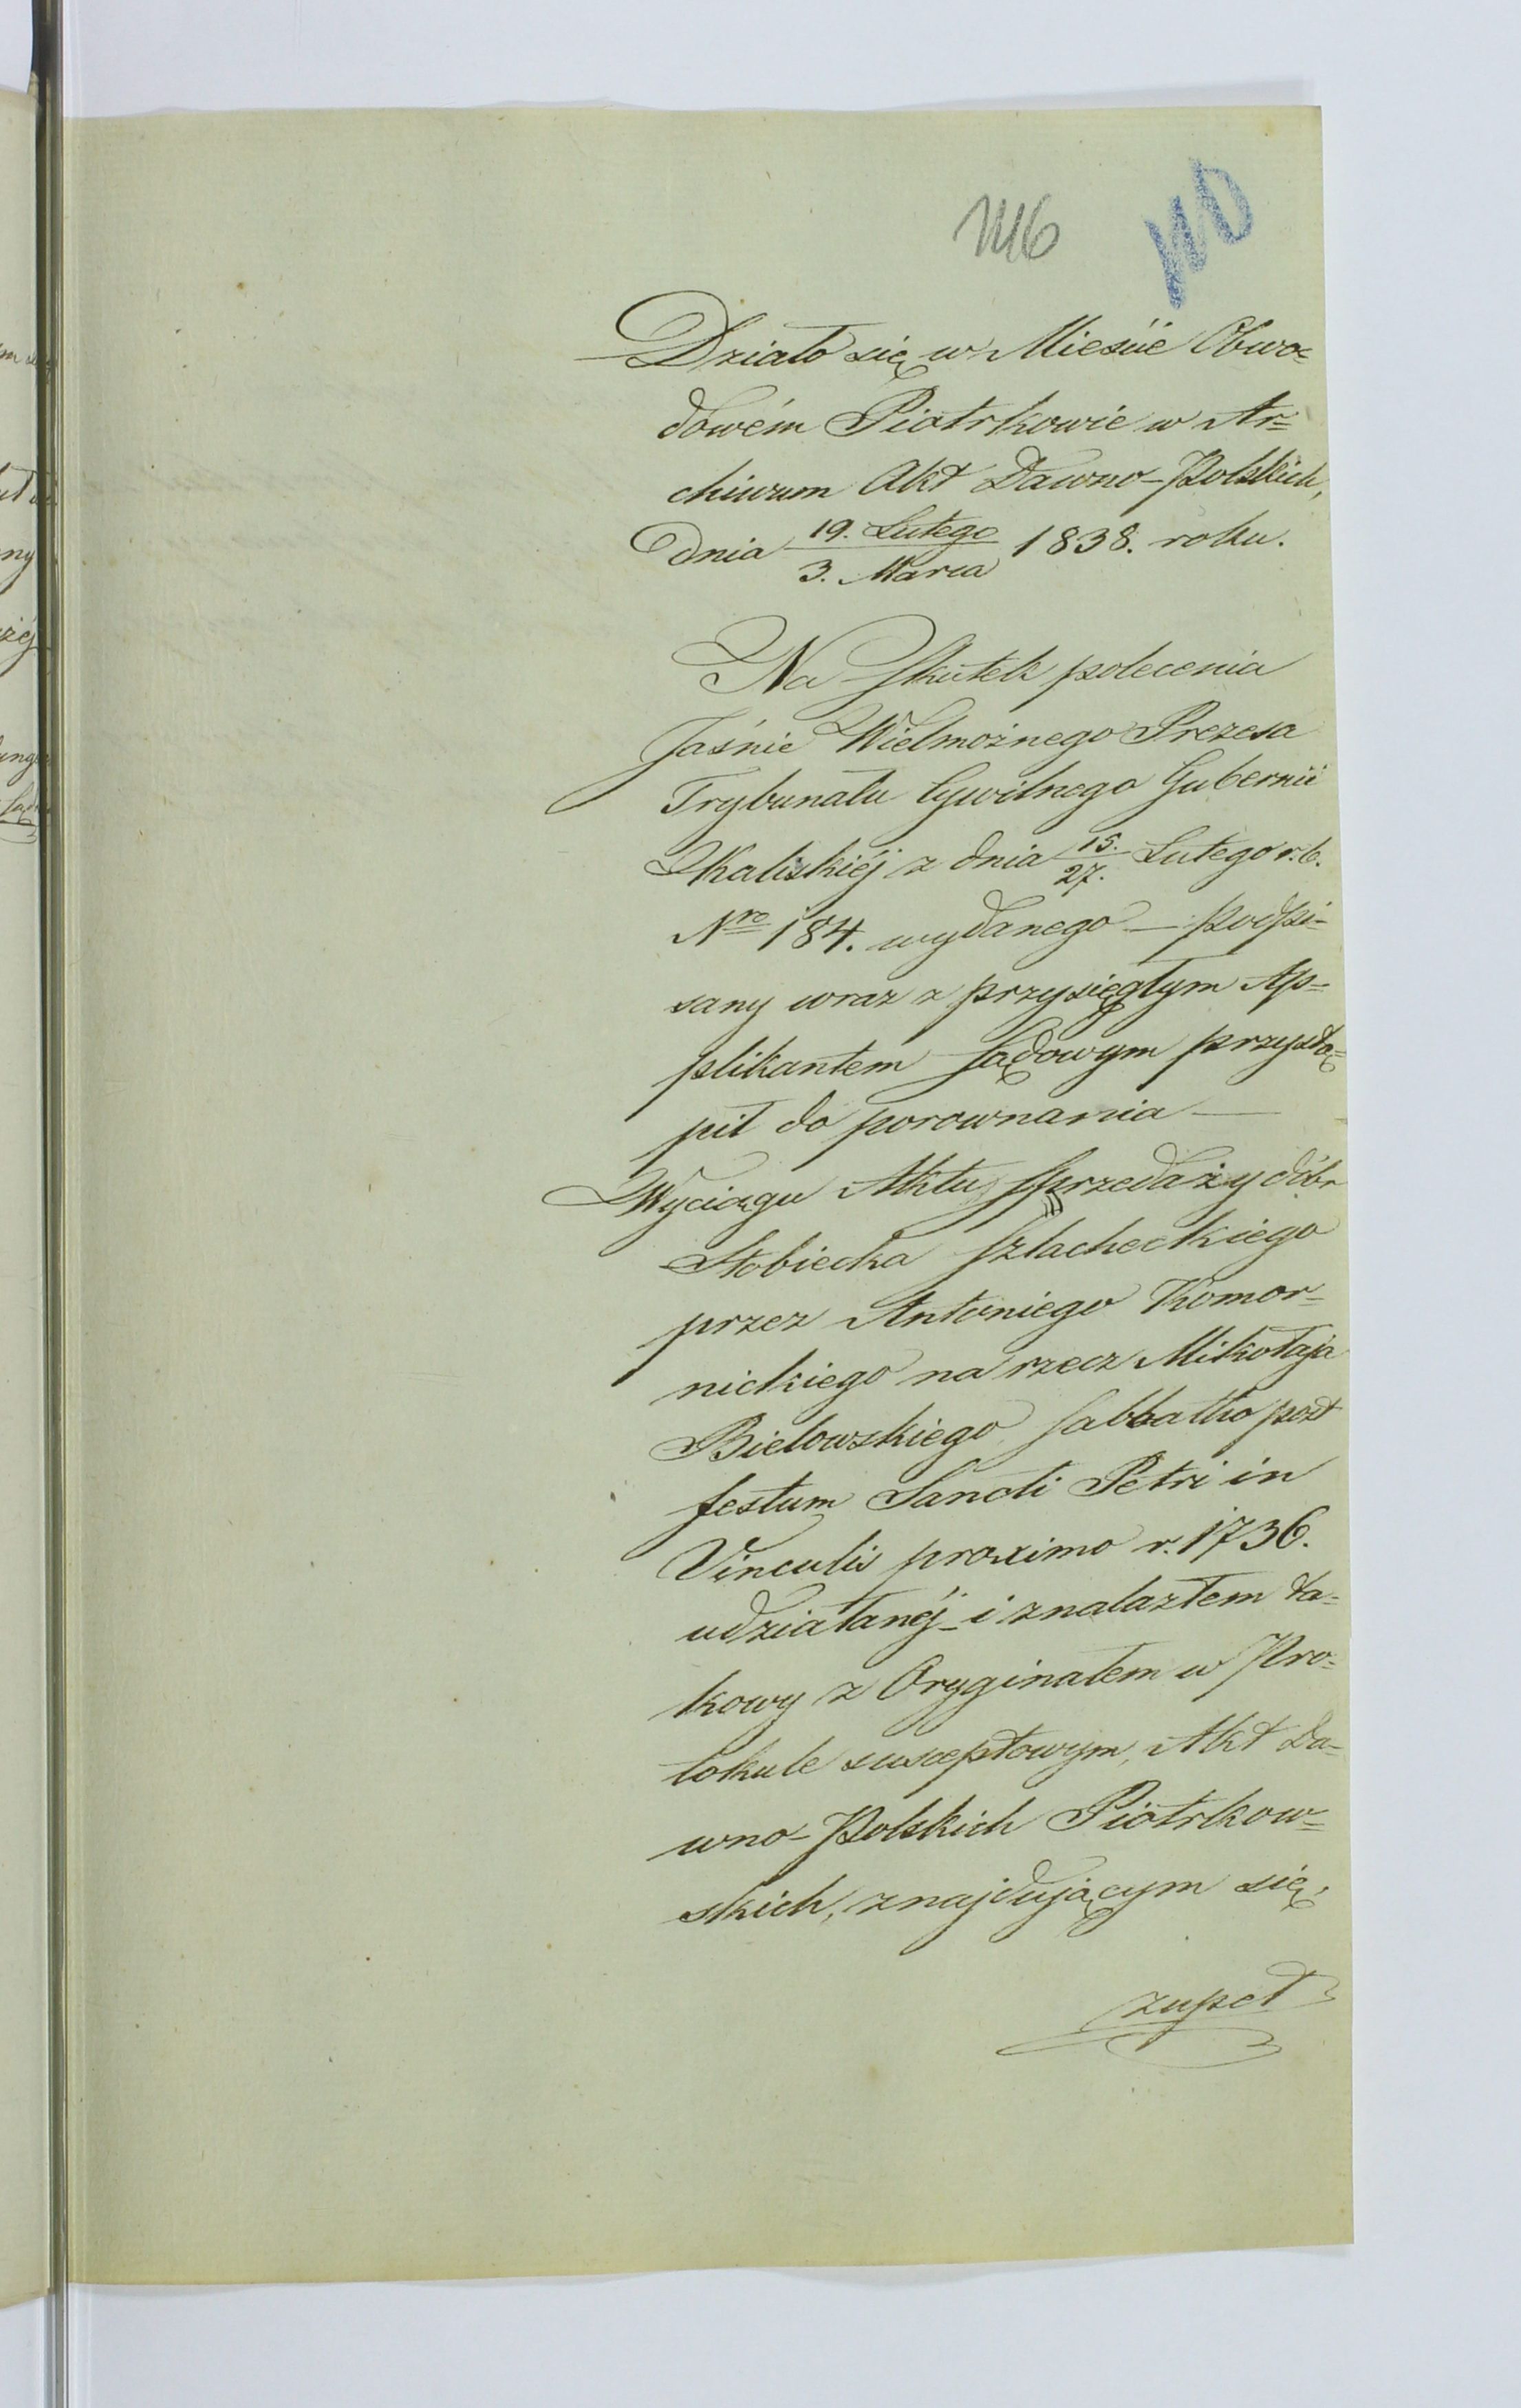 Działo się w Mieście Obwo=
dowém Piotrkowie w Ar=
chiwum Akt Dawno-Polskich,
dnia 19. Lutego / 3. Marca 1838. roku.
Na Skutek polecenia
Jaśnie Wielmożnego Prezesa
Trybunału Cywilnego Gubernii
Kaliskiéj z dnia 15./27. Lutego r.b.
Nro 184. wydanego — podpi-
sany wraz z przysięgłym Ap=
plikantem Sądowym przystą=
pił do porownania —
Wyciągu Aktu Sprzedaży dóbr
Stobiecka Szlacheckiego
przez Antoniego Komor=
nickiego na rzecz Mikołaja
Bielowskiego, Sabbatho post
festum Sancti Petri in
Vinculis proximo r. 1736.
udziałanéj i znalazłem ta=
kowy z Oryginałem w Pro=
tokule susceptowym, Akt Da=
wno-Polskich Piotrkow=
skich, znajdującym się,
zupeł